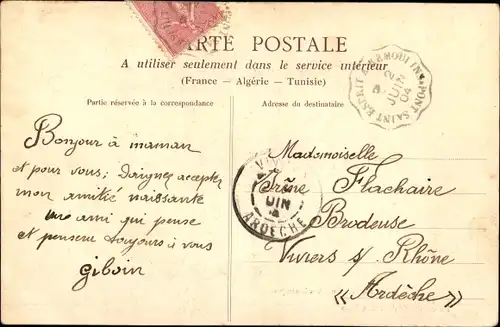 CARTE POSTALE
A utiliser seulement dans le service intérieur
(France - Algérie - Tunisie)
Partie réservée à la correspondance
Adresse du destinataire
Bonjour à maman
et pour vous; Daignez accepter
mon amitié naissante
un ami qui pense
et pensera toujours à vous
Giboin
Mademoiselle
Irène Flachaire
Brodeuse
Viviers s/ Rhône
« Ardèche »
PONT SAINT ESPRIT
2
JUIN
04
JUIN
ARDECHE